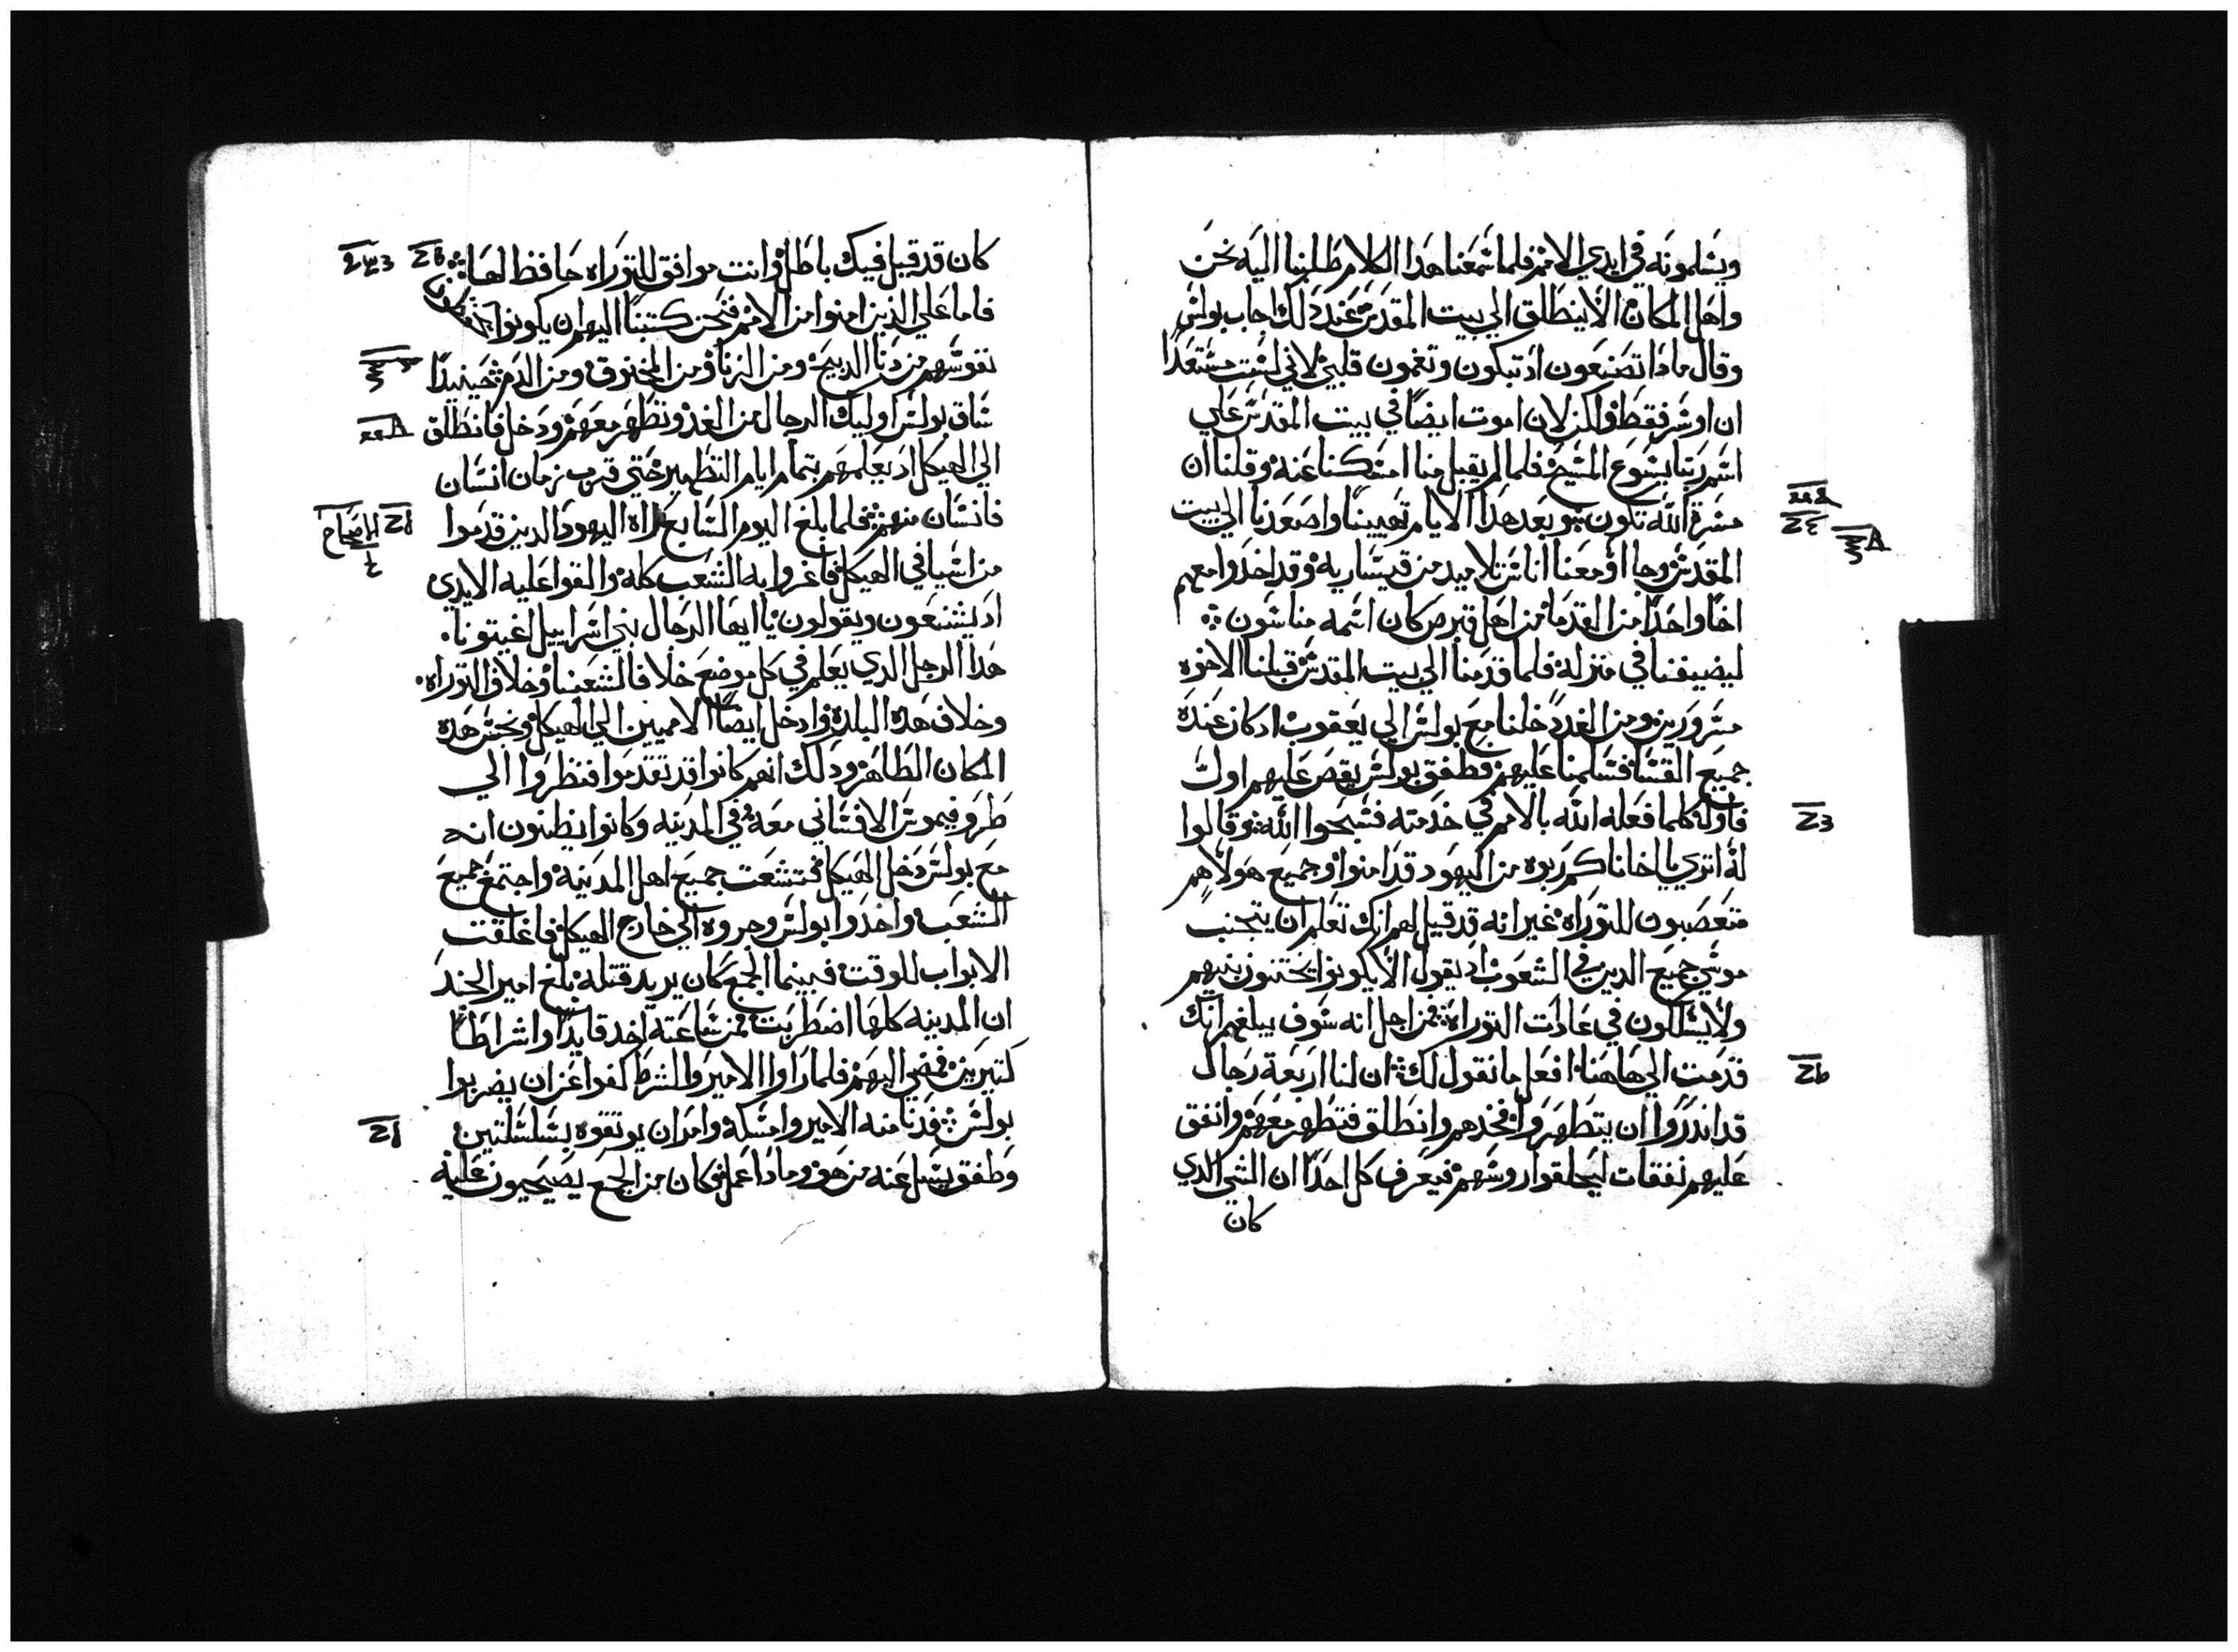 ويسلمونه في ايدي الامم فلما سمعنا هدا الكلام طلبنا اليه نحن
واهل المكان الا ينطلق الي بيت المقدس عند دلك اجاب بولس
وقال مادا تصنعون اد تبكون وتغمون قلبي لاني لست مستعدا
ان اوسر فقط ولكن لان اموت ايضا في بيت المقدس علي
اسم ربنا يسوع المسيح فلما لم يقبل منا امسكنا عنه وقلنا ان
مسرة الله تكون وبعد هدا الايام تهيينا واصعدنا الي بيت
المقدس وجاو معنا اناس تلاميد من قيسارية وقد اخدوا معهم
اخا واحدا من القدما من اهل قبرص كان اسمه مناسون
ليضيفنا في منزله فلما قدمنا الي بيت المقدس قبلنا الاخوه
مسرورين ومن الغد دخلنا مع بولس الي يعقوب ادكان عنده
جميع القسا فسلمنا عليهم وطفق بولس يقص عليهم اول
فاول كلما فعله الله بالامم في خدمته فسبحوا الله وقالوا
له اتري يا اخانا كم ربوه من اليهود قد امنوا وجميع هولاهم
متعصبون للتوراه غير انه قد قيل لهم انك تعلم ان يتجنب
موسي جميع الدين في الشعوب اد يقول الا يكونوا يختنون بنيهم
ولا يسلكون في عادات التوراه فمن اجل انه سوف يبلغهم انك
قدمت الي هاهنا افعل ما نقول لك ان لنا اربعة رجال
قد اندروا ان يتطهروا فخدهم وانطلق فتطهر معهم وانفق
عليهم نفقات ليحلقوا روسهم فيعرف كل احدا ان الشي الدي
كان
كان قد قيل فيك باطل وانت موافق للتوراه حافظ لها
فاما علي الذين امنوا من الامم فنحن كتبنا اليهم ان يكونوا
نفوسهم من دنا الدبيحة ومن الزنا ومن المخنوق ومن الدم حينيدا
ساق بولس اوليك الرجال من الغد وتطهر معهم ودخل فانطلق
الي الهيكل اد يعلمهم تمام ايام التطهير حتي قرب زمان انسان
فانسان منهم فلما بلغ اليوم السابع راه اليهود الدين قدموا
من اسيا في الهيكل فاغروا به الشعب كله والقوا عليه الايدي
اد يشنعون ويقولون يا ايها الرجال بني اسراييل اغيتونا
هدا الرجل الدي يعلم في كل موضع خلافا لشعبنا وخلاف التوراه
وخلاف هده البلده وادخل ايضا الامميين الي الهيكل ونجس هده
المكان الطاهر ودلك انهم كانوا قد تقدموا فنظروا الي
طروفيموس الافساني معه في المدينه وكانوا يظنون انه
مع بولس دخل الهيكل فتشعت جميع اهل المدينة واجتمع جميع
الشعب واخدوا بولس وجروه الي خارج الهيكل فاغلقت
الابواب للوقت فبينما الجمع كان يريد قتله بلغ امير الجند
ان المدينه كلها اضطربت فمن ساعته اخد قايدا واشراطا
كتيرين فمضي اليهم فلما راوا الامير والشرط كفوا عن ان يضربوا
بولس فدنا منه الامير وامسكه وامر ان يوتقوه بسلسلتين
وطفق يسل عنه من هو وما دا عمل فكان من الجمع يصيحيون عليه